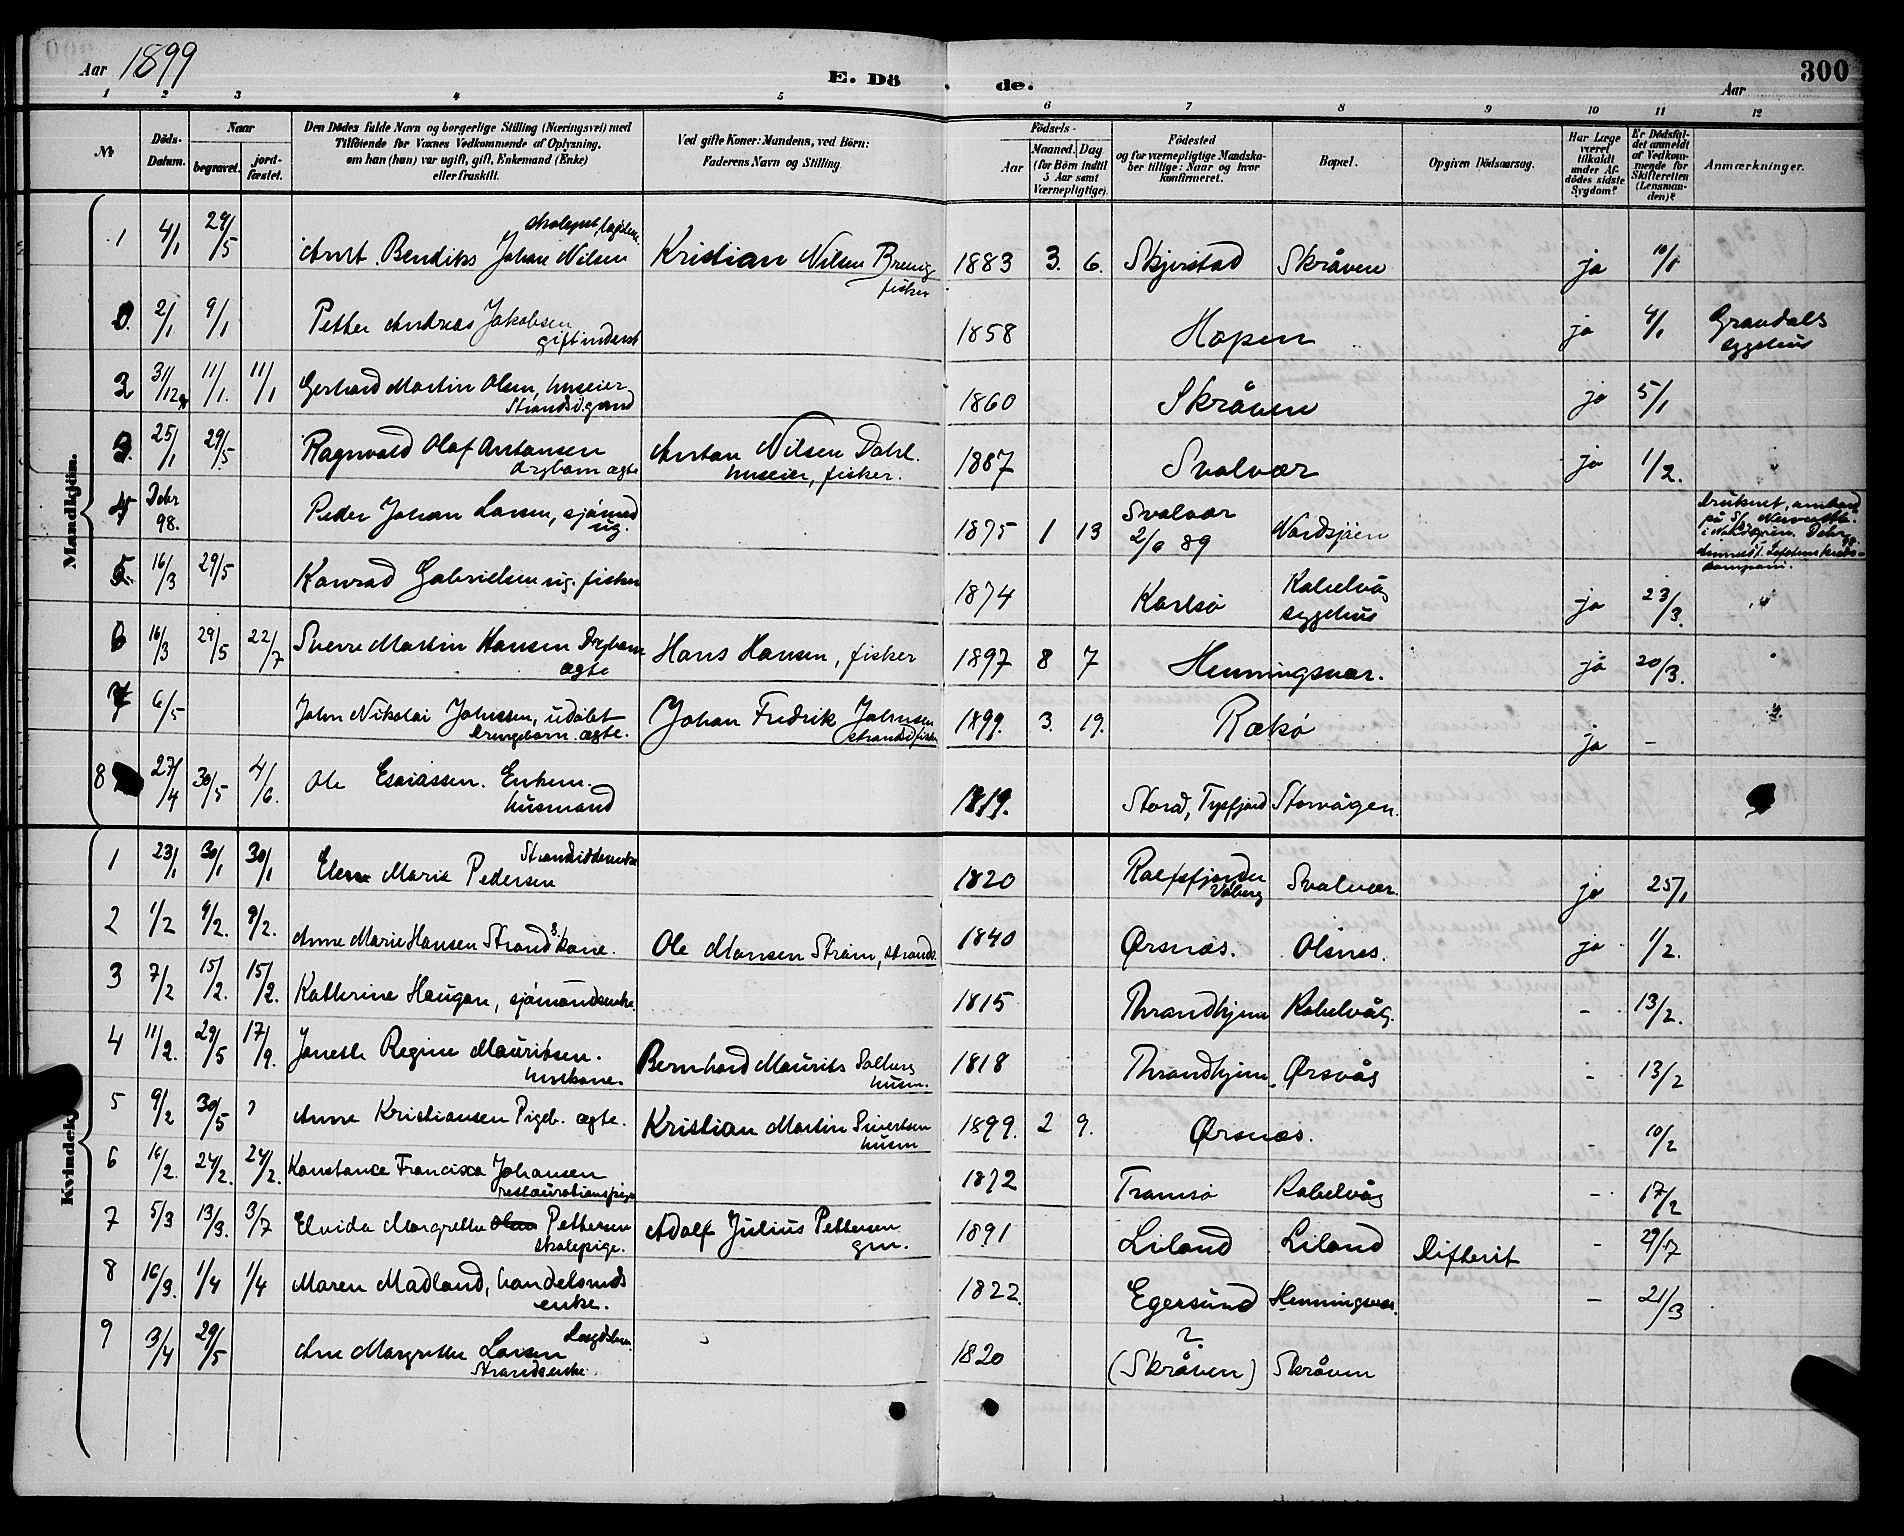 Aar 1899
E. Dö
de.
Aar
300
1 2 3 4 5 6 7 8 9 10 11 12
№
Döds-Datum.
Naar
begravet.
jord-fæstet.
Den Dödes fulde Navn og borgerlige Stilling (Næringsvei) med
Tilföiende for Voxnes Vedkommende af Oplysning,
om han (hun) var ugift, gift, Enkemand (Enke)
eller fraskilt.
Ved gifte Koner: Mandens, ved Börn:
Faderens Navn og Stilling.
Födsels-
Aar
Maaned. Dag
(for Börn indtil
5 Aar samt
Værnepligtige).
Födested
og for værnepligtige Mandska-
ber tillige: Naar og hvor
konfirmeret.
Bopæl.
Opgiven Dödsaarsag.
Har Læge
været
tilkaldt
under Af-
dödes sidste
Sygdom?
Er Dödsfal-
det anmeldt
af Vedkom-
mende for
Skifteretten
(Lensman-
den)?
Anmærkninger.
Mandkjön.
1 4/1 29/5 Arnt Bendiks Johan Nilsen Kristian Nilsen fisker 1883 3. 6. Skjerstad Skråven ja 10/1
2/1 9/1 Petter Andreas Jakobsen gift inderst 1858 Hopen ja 4/1 Gravdals sygehus
2 31/12 11/1. 11/1 Gerhard Martin Olsen, huseier 1860 Skråven ja 5/1
3. 25/1 29/5 Ragnvald Olaf Antonsen Drgbarn ægte Anton Nilsen Dahl. huseier, fisker. 1887 Svolvær ja 1/2. "
4 Debr 98. Peder Johan Larsen, sjömand ug. 1875 1 13 Svolvær 89 Nordsjöen druknet, ombord
5 16/3 29/5 Konrad Gabrielsen ug. fisker 1874 Karlsö Kabelvåg sygehus ja 23/3. "
6 16/3 29/5 22/7 Sverre Martin Hansen Drgbarn ægte Hans Hansen, fisker 1897 8 7 Henningsvær. ja 20/3. "
7 6/5 John Nikolai Johnsen, udöbt Drengebarn ægte. Johan Fredrik Johnsen 1899. 3. 19. Rækö ja - "
8 27/4 30/5 4/6. Ole Esaiassen. Enkem. husmand 1819. Stord, Tysfjord Storvågen.
Kvindekj
1 23/1 30/1 30/1 Elen Marie Pedersen 1820 Svolvær. ja 25/1
2 1/2 9/2. 9/2. Anne Marie Hansen Strands.kone. Ole Monsen Ström, strands. 1840 Örsnæs. Olsnes. ja 1/2.
3 7/2 15/2. 15/2. Kathrine Haugan, sjömandsenke. 1815 Throndhjem Kabelvåg. - 13/2.
4 11/2. 29/5 17/9. Regine Mauritsen. huskone. Bernhard Maurits husm. 1818 Throndhjem. Örsvåg - 13/2
5 9/2 30/5 ? Anne Kristiansen Pigeb. ægte. Kristian Martin Sivertsen husm 1899. 2 9. Örsnæs. - 10/2
6 16/2. 24/2. 24/2. Konstance Francisca Johansen restaurationspige 1872 Tromsö Kabelvåg - 17/2
7 5/3 13/3. 3/7 Elvida Margrethe Pettersen skolepige. Adolf Julius Pettersen gm. 1891 Liland Liland Difterit - 29/7
8 16/3. 1/4 1/4 Maren Madland, handelsmds enke. 1822. Egersund Henningsvær. - 21/3
9 3/4 29/5 Ane Margrethe Larsen Strandsenke. 1820 ? (Skråven) Skråven